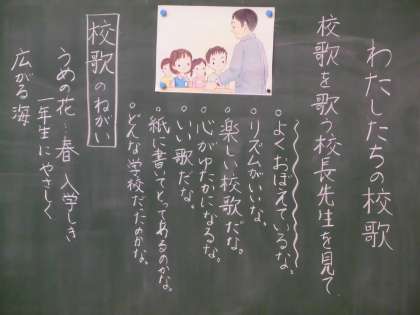 わたしたちの校歌
校歌を歌う校長先生を見て
。よくおぼえているな。
。リズムがいいな。
。楽しい校歌だな。
。心がゆたかになるな。
。いい歌だな。
。紙に書いてとってあるのかな。
。どんな学校だったのかな。
校歌のねがい
うめの花…春 入学しき
一年生にやさしく
広がる海